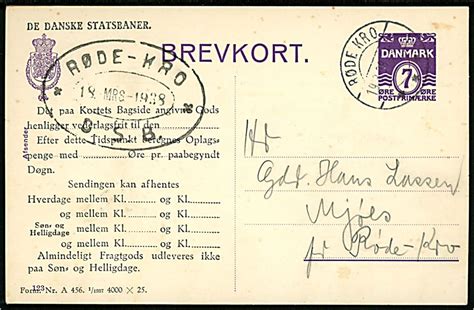 DE DANSKE STATSBANER.
BREVKORT.
RØDE-KRO
18 MRS 1938
D.S.B.
RØDE KRO
DANMARK
7
ØRE ØRE
POSTFRIMÆRKE
Afsender:
Det paa Kortets Bagside angivne Gods
henligger vederlagsfrit til den
Efter dette Tidspunkt beregnes Oplags-
penge med Øre pr. paabegyndt
Døgn.
Sendingen kan afhentes
Hverdage mellem Kl. og Kl.
og mellem Kl. og Kl.
Søn- og Helligdage mellem Kl. og Kl.
og mellem Kl. og Kl.
Almindeligt Fragtgods udleveres ikke
paa Søn- og Helligdage.
123
Form. Nr. A 456. 1/1937 4000 × 25.
Hr
Gdr. Hans Lassen
Mjøls
pr Røde-Kro